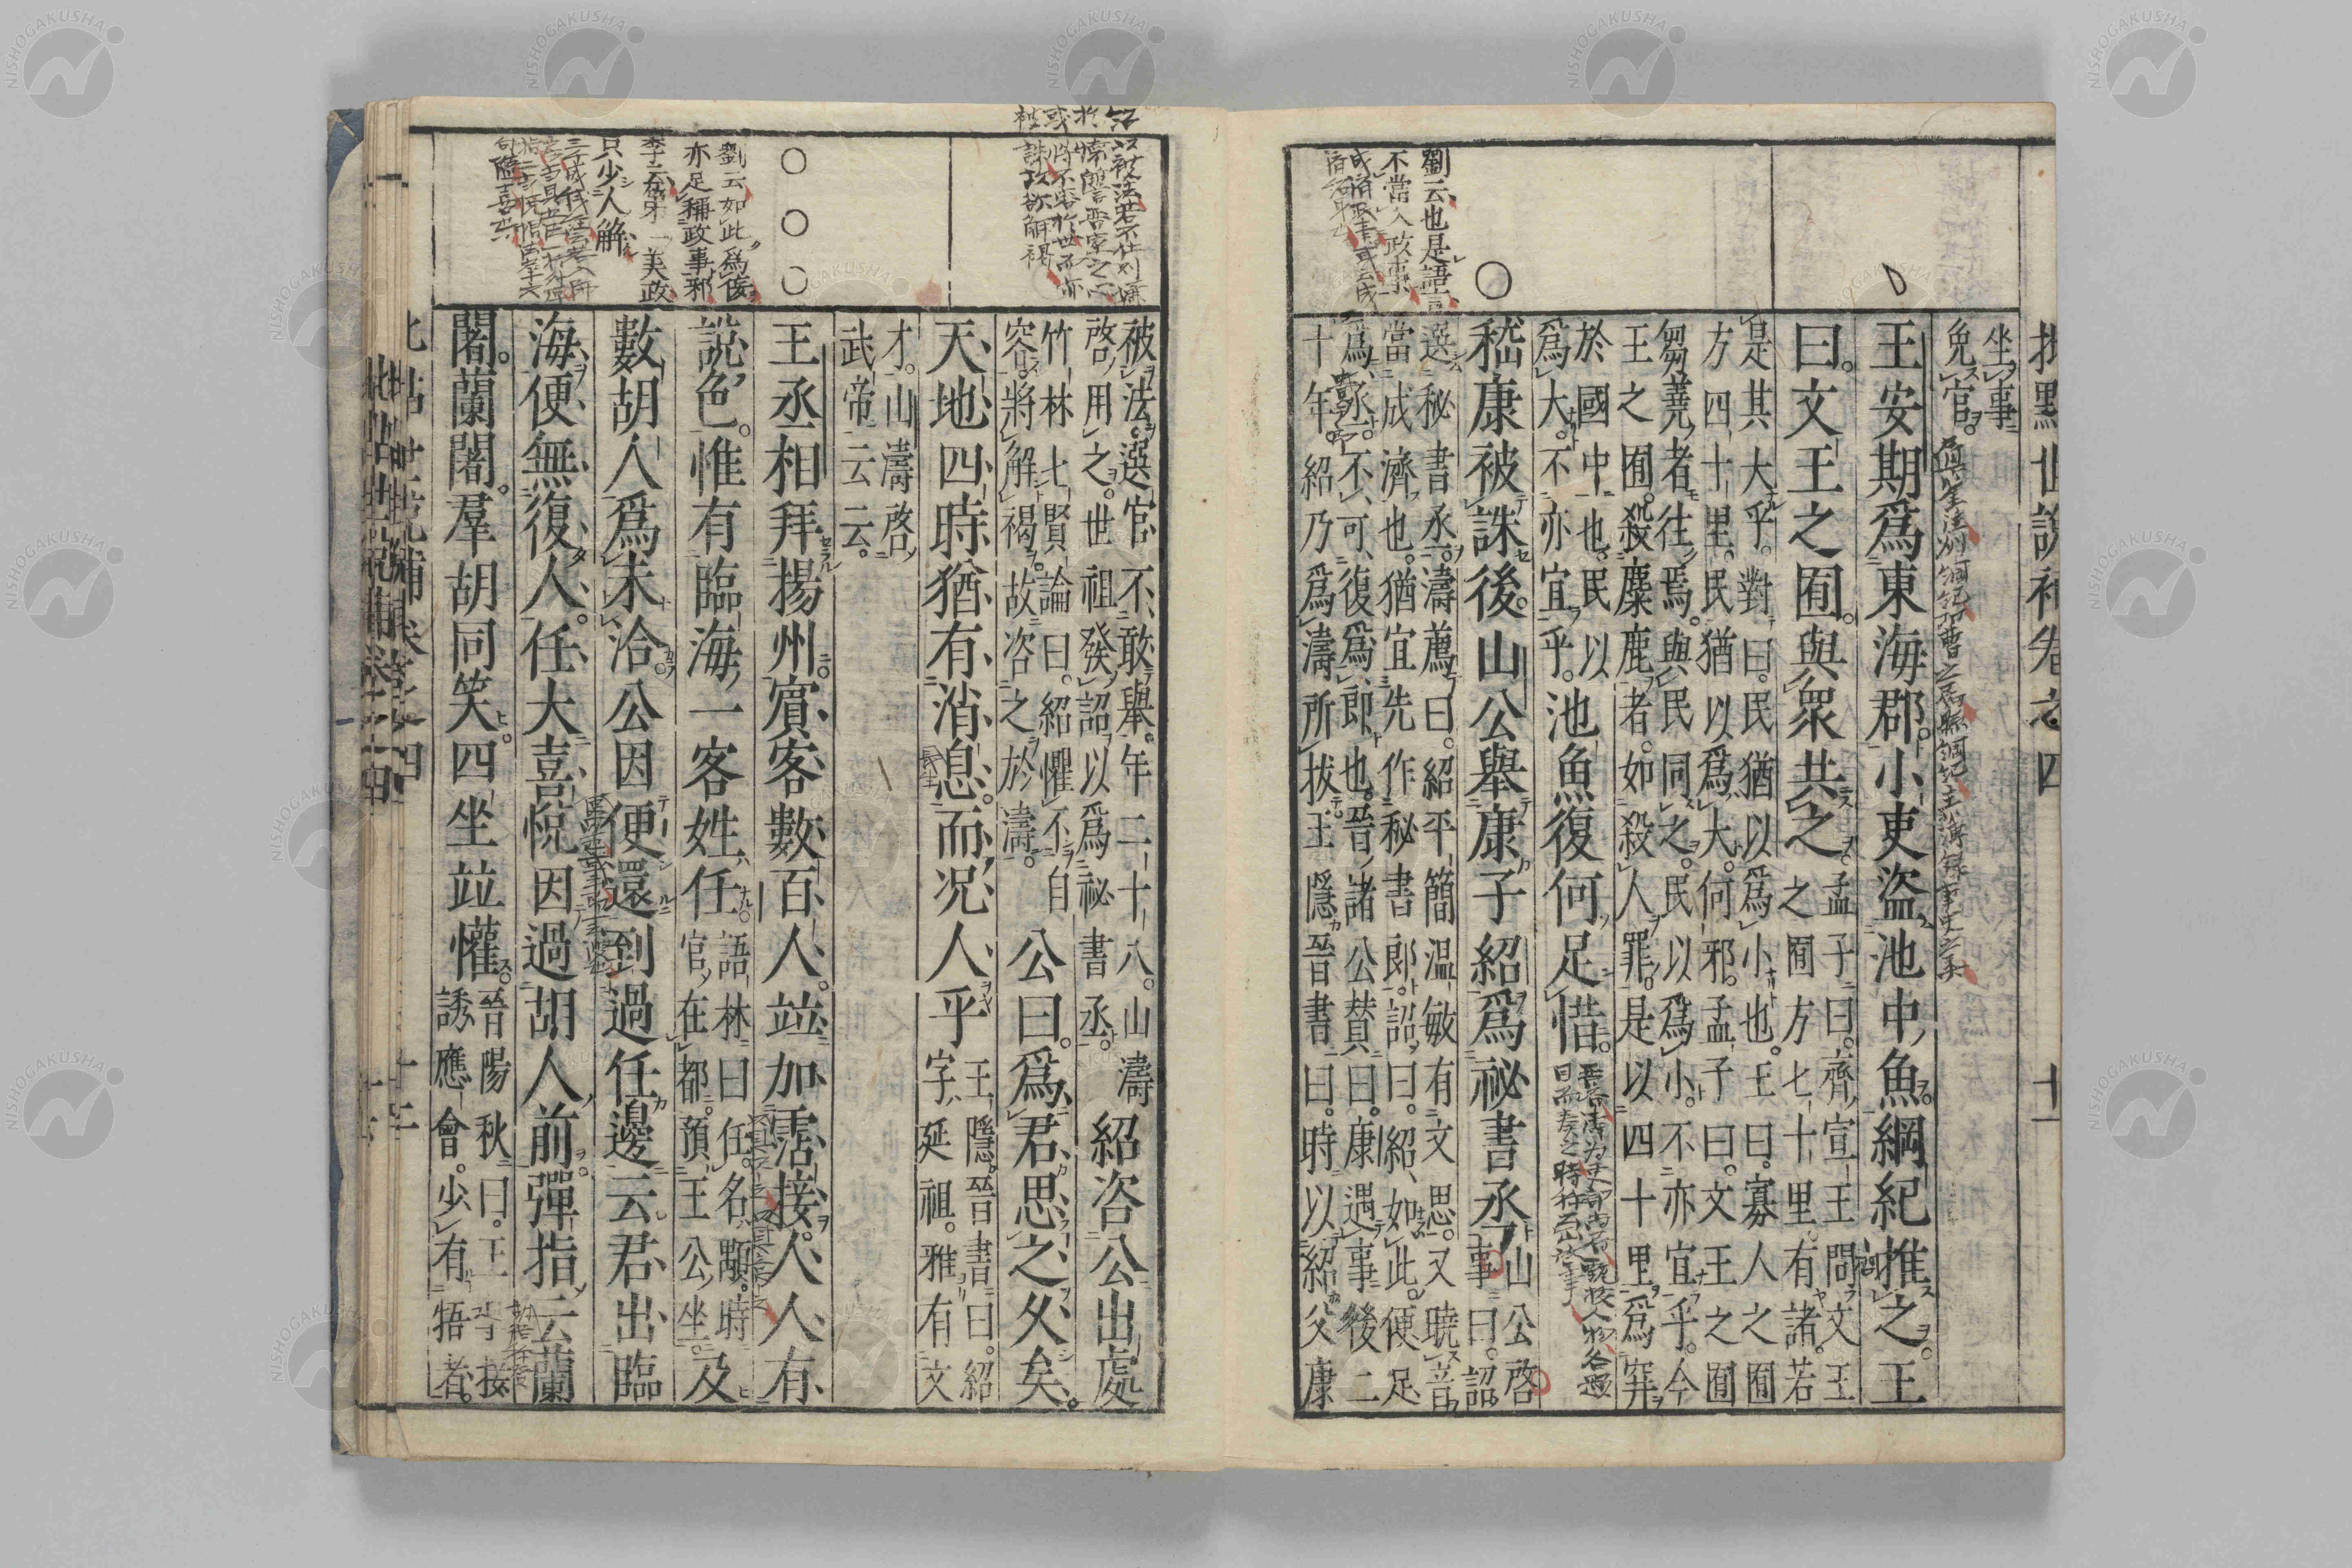 批點世說補卷之四
十一
坐事
免官。
王安期爲東海郡。小吏盜池中魚。綱紀推之。王
曰。文王之囿。與眾共之。
孟子曰。齊宣王問文王
之囿方七十里。有諸。若
是其大乎。對曰。民猶以爲小也。王曰。寡人之囿
方四十里。民猶以爲大。何邪。孟子曰。文王之囿
芻蕘者往焉。與民同之。民以爲小。不亦宜乎。今
王之囿。殺麋鹿者。如殺人罪。是以四十里爲穽
於國中也。民以
爲大。不亦宜乎。
池魚復何足惜。
嵇康被誅後。山公舉康子紹爲祕書丞。
山公啓
事曰。詔
選秘書丞。濤薦曰。紹平簡溫敏有文思。又曉音
當成濟也。猶宜先作秘書郎。詔曰。紹如此。便足
爲丞。不可復爲郎也。晉諸公贊曰。康遇事後二
十年。紹乃爲濤所拔。王隱晉書曰。時以紹父康
劉云也是語言
不當入政事
被法。選官不敢舉。年二十八。山濤
啓用之。世祖發詔以爲祕書丞。
紹咨公出處
竹林七賢論曰。紹懼不自
容。將解褐。故咨之於濤。
公曰。爲君思之久矣。
天地四時。猶有消息。而况人乎
王隱晉書曰。紹
字延祖。雅有文
才。山濤啓
武帝云云。
王丞相拜揚州。賓客數百人。竝加霑接。人人有
說色。惟有臨海一客姓任
語林曰任名顒。時
官在都。預王公坐。
及
數胡人爲未洽。公因便還到過任邊云。君出臨
海便無復人。任大喜悅。因過胡人前彈指云蘭
闍。蘭闍。羣胡同笑。四坐竝懽。
晉陽秋曰。王導接
誘應會。少有牾者。
劉云如此爲佞
亦足稱政事邪
李云在牙一美政
只少人解